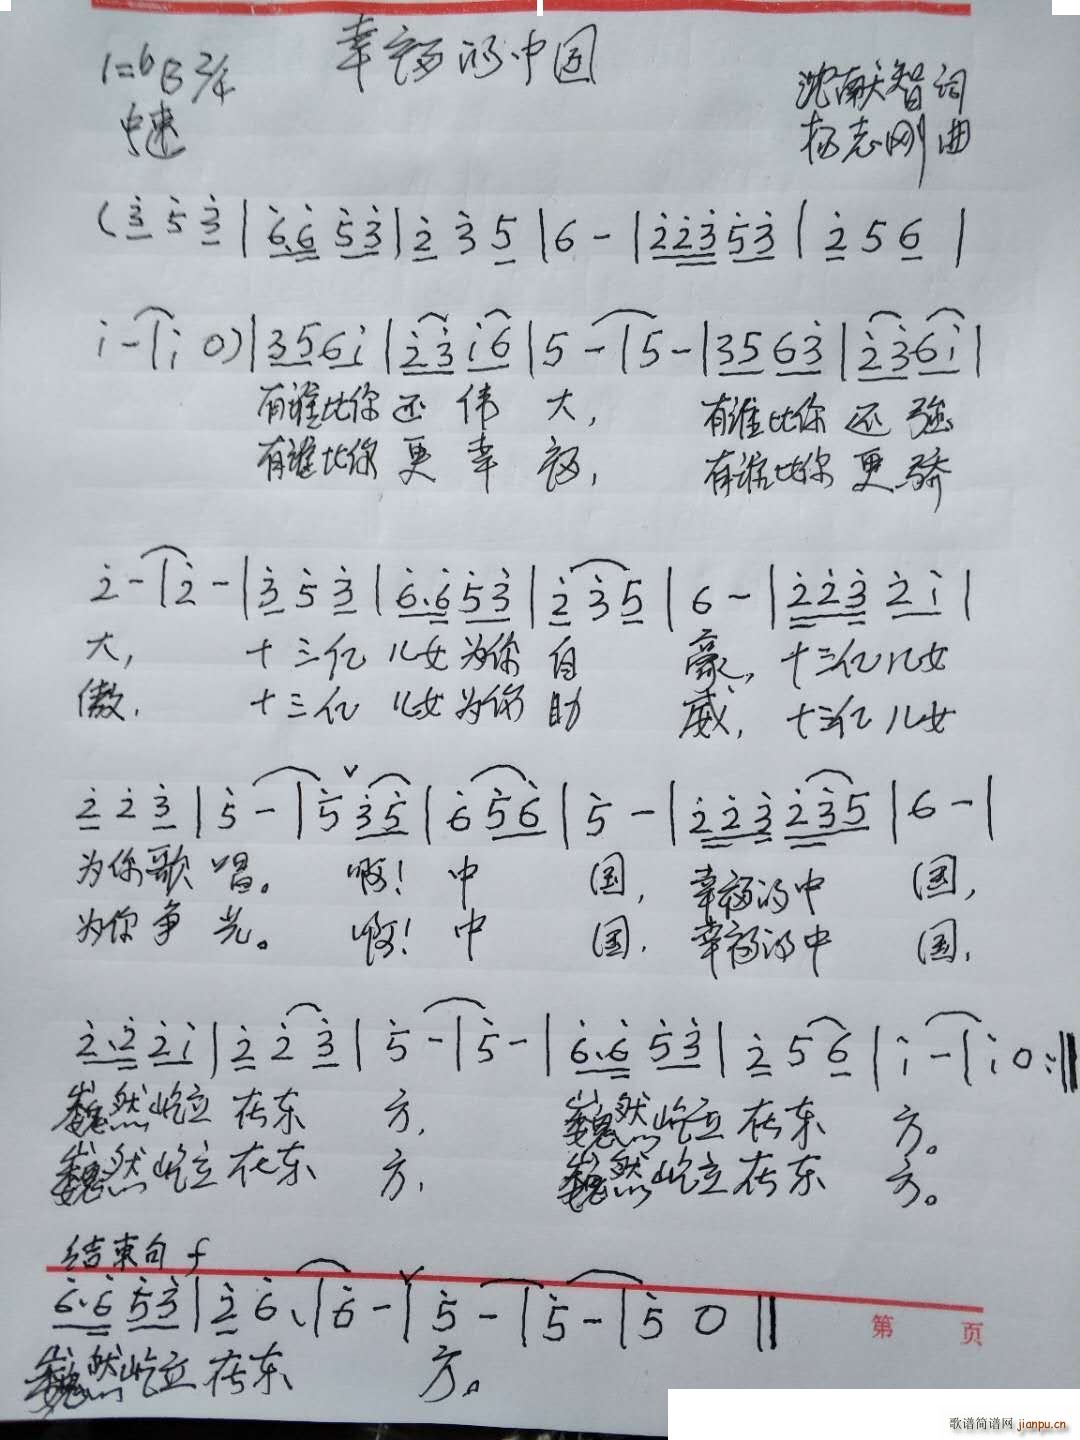 幸福的中国
1=bB 2/4
中速
沈献智词
杨志刚曲
(3 5 3 | 6.6 5 3 | 2 3 5 | 6 - | 2 2 3 5 3 | 2 5 6 |
i - | i 0) | 3 5 6 i | 2 3 i 6 | 5 - | 5 - | 3 5 6 3 | 2 3 6 i |
有谁比你还伟大, 有谁比你还强
有谁比你更幸福, 有谁比你更骄
2 - | 2 - | 3 5 3 | 6.6 5 3 | 2 3 5 | 6 - | 2 2 3 2 i |
大, 十三亿儿女为你自豪, 十三亿儿女
傲, 十三亿儿女为你助威, 十三亿儿女
2 2 3 | 5 - | 5 3 5 | 6 5 6 | 5 - | 2 2 3 2 3 5 | 6 - |
为你歌唱。 啊! 中国, 幸福的中国,
为你争光。 啊! 中国, 幸福的中国,
2.2 2 i | 2 2 3 | 5 - | 5 - | 6.6 5 3 | 2 5 6 | i - | i 0 :||
巍然屹立在东方, 巍然屹立在东方。
巍然屹立在东方, 巍然屹立在东方。
结束句 f
6.6 5 3 | 2 6. | 6 - | 5 - | 5 - | 5 0 ||
巍然屹立在东方。
第 页
歌谱简谱网 jianpu.cn